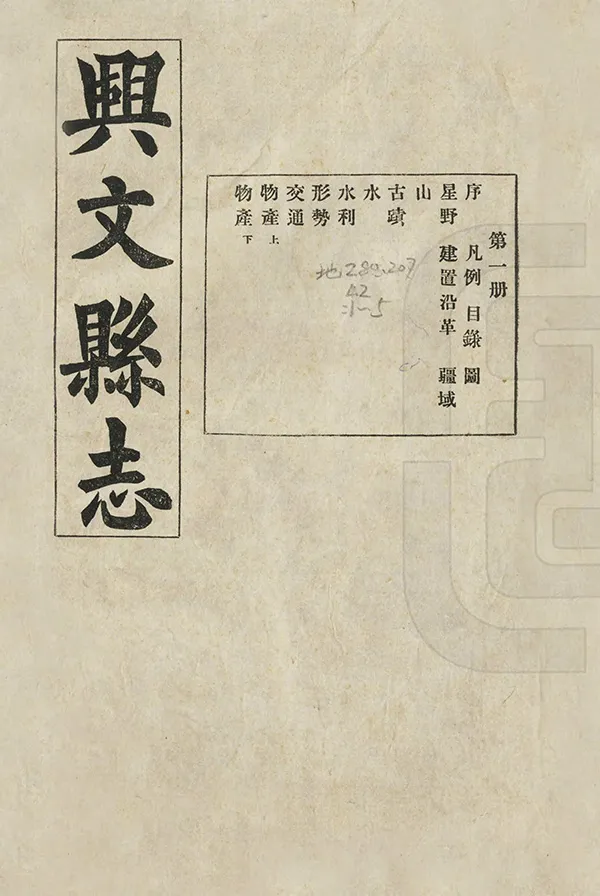 興文縣志
第一册
序 凡例 目錄 圖
星野 建置沿革 疆域
山
古蹟
水
水利
形勢
交通
物產上
物產下
地289.207
42
:1-5